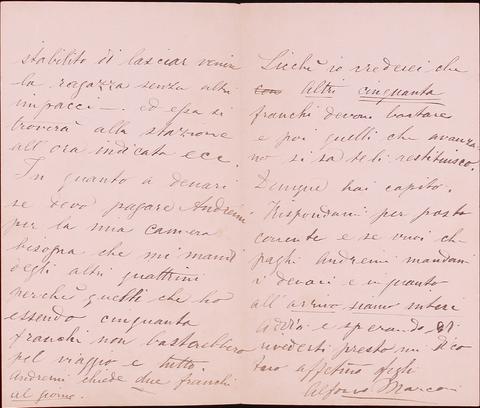 stabilito di lasciar venire
la ragazza senza altri
impacci. ed essa si
troverà alla stazione
all'ora indicata ecc.
In quanto a denari
se devo pagare Andreini
per la mia camera
bisogna che mi mandi
degli altri quattrini
perchè quelli che ho
essendo cinquanta
franchi non basterebbero
pel viaggio e tutto.
Andreini chiede due franchi
al giorno.
Sicchè io crederei che
altri cinquanta
franchi devono bastare
e poi quelli che avanza-
no si sa te li restituisco.
Dunque hai capito.
Rispondimi per posta
corrente e se vuoi che
paghi Andreini mandami
i denari e in quanto
all'arrivo siamo intesi
Addio e sperando di
rivederti presto mi dico
tuo affetmo figlio
Alfonso Marconi